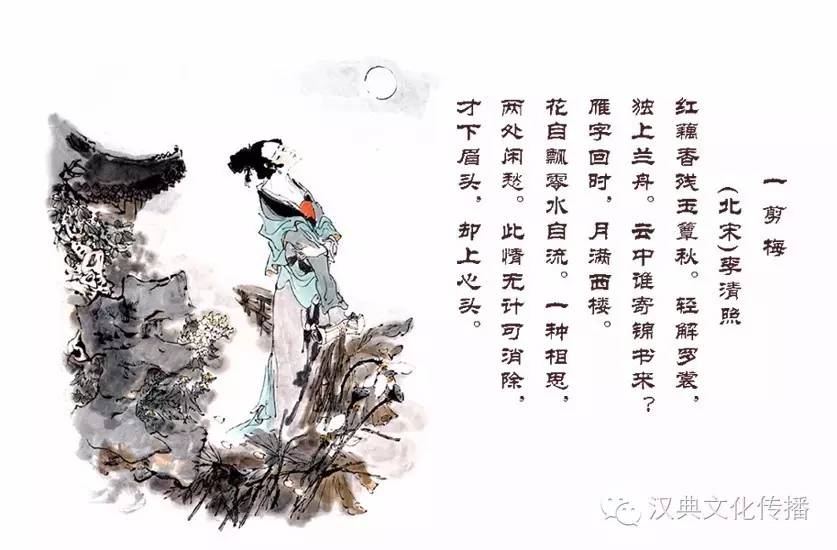 一剪梅
(北宋)李清照
红藕香残玉簟秋。轻解罗裳,
独上兰舟。云中谁寄锦书来?
雁字回时,月满西楼。
花自飘零水自流。一种相思,
两处闲愁。此情无计可消除,
才下眉头,却上心头。
汉典文化传播